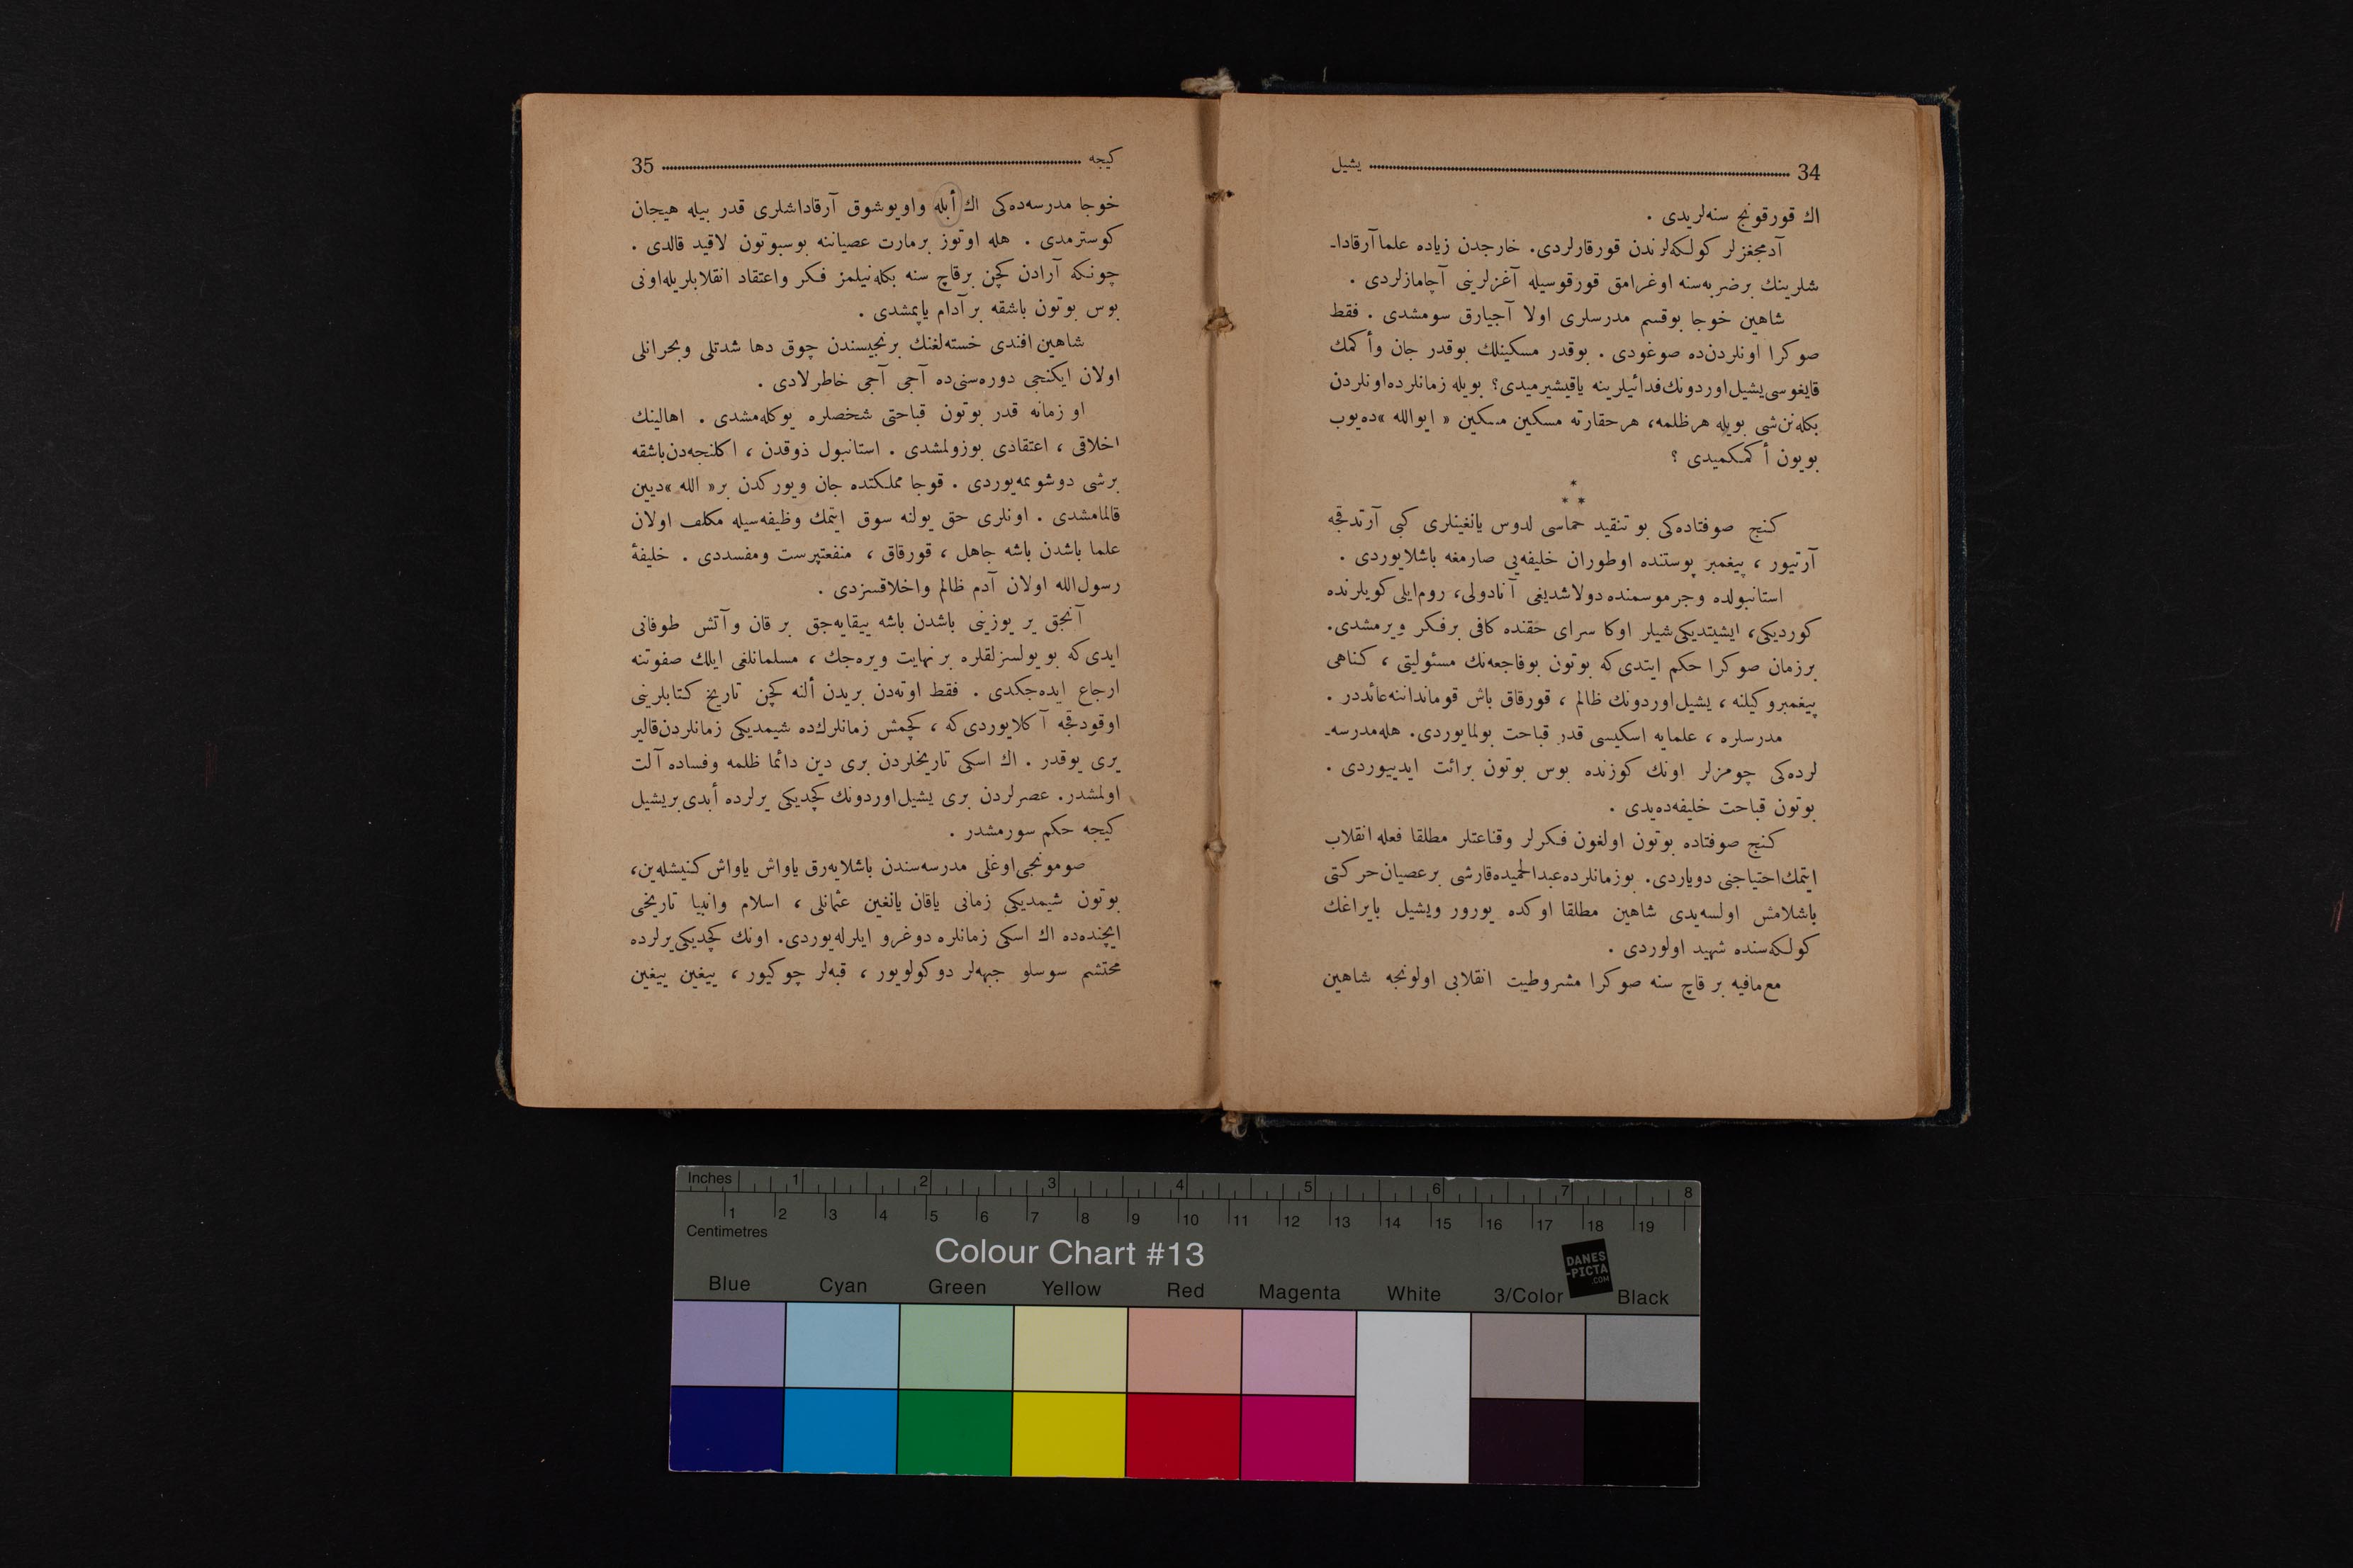 34 یشیل
اك قورقونج سنه‌لریدی .
آدمجغزلر كولكه‌لرندن قورقارلردی. خارجدن زیاده علما آرقادا-
شلرینك برضربه‌سنه اوغرامق قورقوسیله آغزلرینی آچامازلردی .
شاهین خوجا بوقسم مدرسلری اولا آجیارق سومشدی . فقط
صوكرا اونلردن‌ده صوغودی . بوقدر مسكینلك بوقدر جان وأكمك
قایغوسی یشیل‌اوردونك فدائیلرینه یاقیشیرمیدی؟ بویله زمانلرده اونلردن
بكله‌نن‌شی بویله هرظلمه، هرحقارته مسكین مسكین « ایوالله »ده‌یوب
بویون أكمكمیدی ؟
* * *
كنج صوفتاده‌كی بو تنقید حماسی لدوس یانغینلری كبی آرتدقجه
آرتیور ، پیغمبر پوستنده اوطوران خلیفه‌یی صارمغه باشلایوردی .
استانبولده وجرموسمنده دولاشدیغی آنادولی، روم‌ایلی كویلرنده
كوردیكی، ایشیتدیكی‌شیلر اوكا سرای حقنده كافی برفكر ویرمشدی.
برزمان صوكرا حكم ایتدی‌كه بوتون بوفاجعه‌نك مسئولیتی ، كناهی
پیغمبروكیلنه ، یشیل‌اوردونك ظالم ، قورقاق باش قوماندانه‌عائددر .
مدرسلره ، علمایه اسكیسی قدر قباحت بولمایوردی. هله‌مدرسه-
لرده‌كی چومزلر اونك كوزنده بوس بوتون برائت ایدییوردی .
بوتون قباحت خلیفه‌ده‌یدی .
كنج صوفتاده بوتون اولغون فكرلر وقناعتلر مطلقا فعله انقلاب
ایتمك‌احتیاجنی دویاردی. بوزمانلرده‌عبدالحمیده‌قارشی برعصیان‌حركتی
باشلامش اولسه‌یدی شاهین مطلقا اوكده یورور ویشیل بایراغك
كولكه‌سنده شهید اولوردی .
مع‌مافیه بر قاچ سنه صوكرا مشروطیت انقلابی اولونجه شاهین
كیجه 35
خوجا مدرسه‌ده‌كی اك أبله واویوشوق آرقاداشلری قدر بیله هیجان
كوسترمدی . هله اوتوز برمارت عصیاننه بوسبوتون لاقید قالدی .
چونكه آرادن كچن برقاچ سنه بكله‌نیلمز فكر واعتقاد انقلابلریله‌اونی
بوس بوتون باشقه بر آدام یاپمشدی .
شاهین افندی خسته‌لغنك برنجیسندن چوق دها شدتلی وبحرانلی
اولان ایكنجی دوره‌سنی‌ده آجی آجی خاطرلادی .
او زمانه قدر بوتون قباحتی شخصلره یوكله‌مشدی . اهالینك
اخلاقی ، اعتقادی بوزولمشدی . استانبول ذوقدن ، اكلنجه‌دن‌باشقه
برشی دوشونمه‌یوردی . قوجا مملكتده جان ویوركدن بر« الله »دیین
قالمامشدی . اونلری حق یولنه سوق ایتمك وظیفه‌سیله مكلف اولان
علما باشدن باشه جاهل ، قورقاق ، منفعتپرست ومفسددی . خلیفۀ
رسول‌الله اولان آدم ظالم واخلاقسزدی .
آنجق یر یوزینی باشدن باشه ییقایه‌جق بر قان وآتش طوفانی
ایدی‌كه بو یولسزلقلره بر نهایت ویره‌جك ، مسلمانلغی ایلك صفوتنه
ارجاع ایده‌جكدی . فقط اوته‌دن بریدن ألنه كچن تاریخ كتابلرینی
اوقودقجه آكلایوردی‌كه ، كچمش زمانلرك‌ده شیمدیكی زمانلردن‌قالیر
یری یوقدر . اك اسكی تاریخلردن بری دین دائما ظلمه وفساده آلت
اولمشدر. عصرلردن بری یشیل‌اوردونك كچدیكی یرلرده أبدی بریشیل
كیجه حكم سورمشدر .
صومونجی‌اوغلی مدرسه‌سندن باشلایه‌رق یاواش یاواش كنیشله‌ین،
بوتون شیمدیكی زمانی یاقان یانغین عثمانلی ، اسلام وانبیا تاریخی
ایچنده‌ده اك اسكی زمانلره دوغرو ایلرله‌یوردی. اونك كچدیكی‌یرلرده
محتشم سوسلو جبهه‌لر دوكولویور ، قبه‌لر چوكیور ، ییغین ییغین
Inches 1 2 3 4 5 6 7 8
1 2 3 4 5 6 7 8 9 10 11 12 13 14 15 16 17 18 19
Centimetres
Colour Chart #13
DANES
-PICTA
.COM
Blue Cyan Green Yellow Red Magenta White 3/Color Black